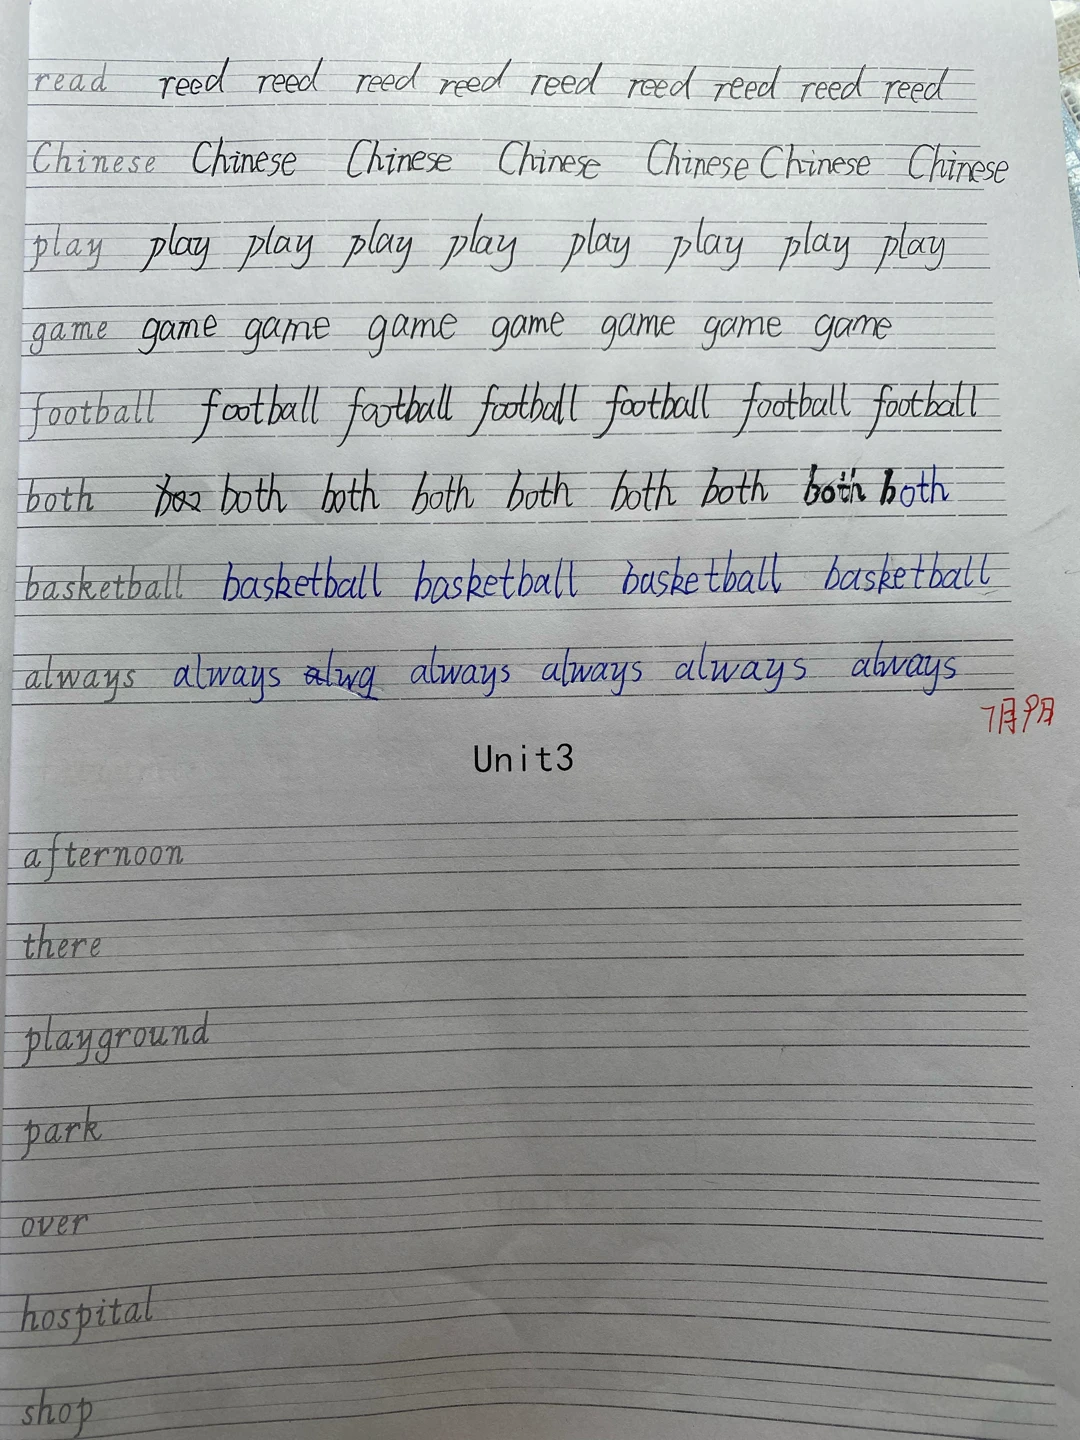 read reed reed reed reed reed reed reed reed reed
Chinese Chinese Chinese Chinese Chinese Chinese Chinese
play play play play play play play play play
game game game game game game game game
football football football football football football football
both both both both both both both both both
basketball basketball basketball basketball basketball
always always alwa always always always always
7月9月
Unit3
afternoon
there
playground
park
over
hospital
shop